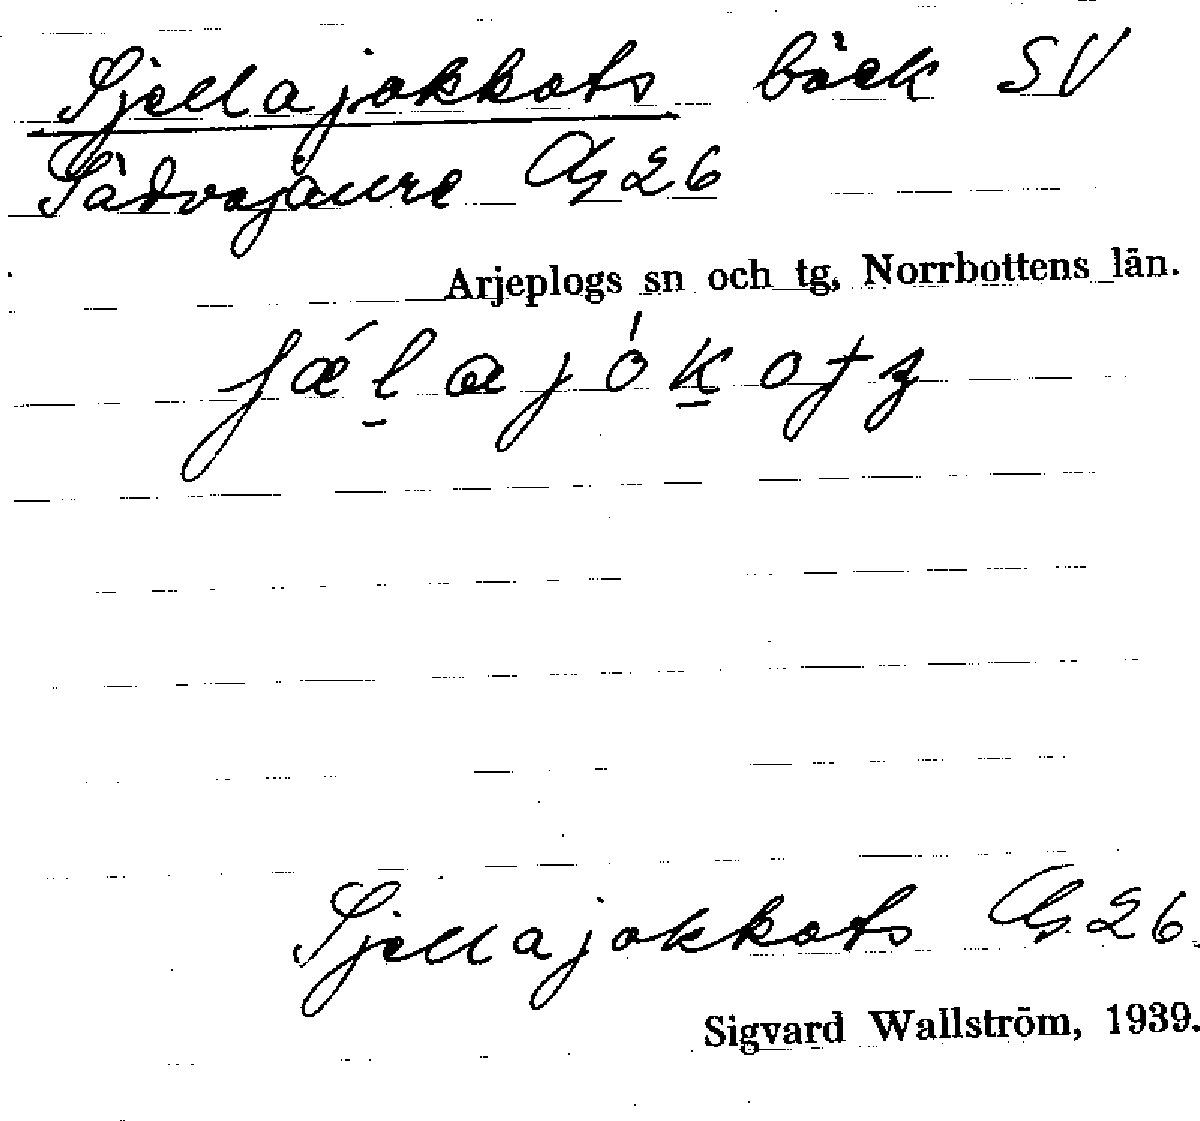 Sjellajokkots bäck SV
Sädvajaure Gb 26
Arjeplogs sn och tg, Norrbottens län.
ʃǽl̲ɑjók̲otʒ
Sjellajokkots Gb 26.
Sigvard Wallström, 1939.